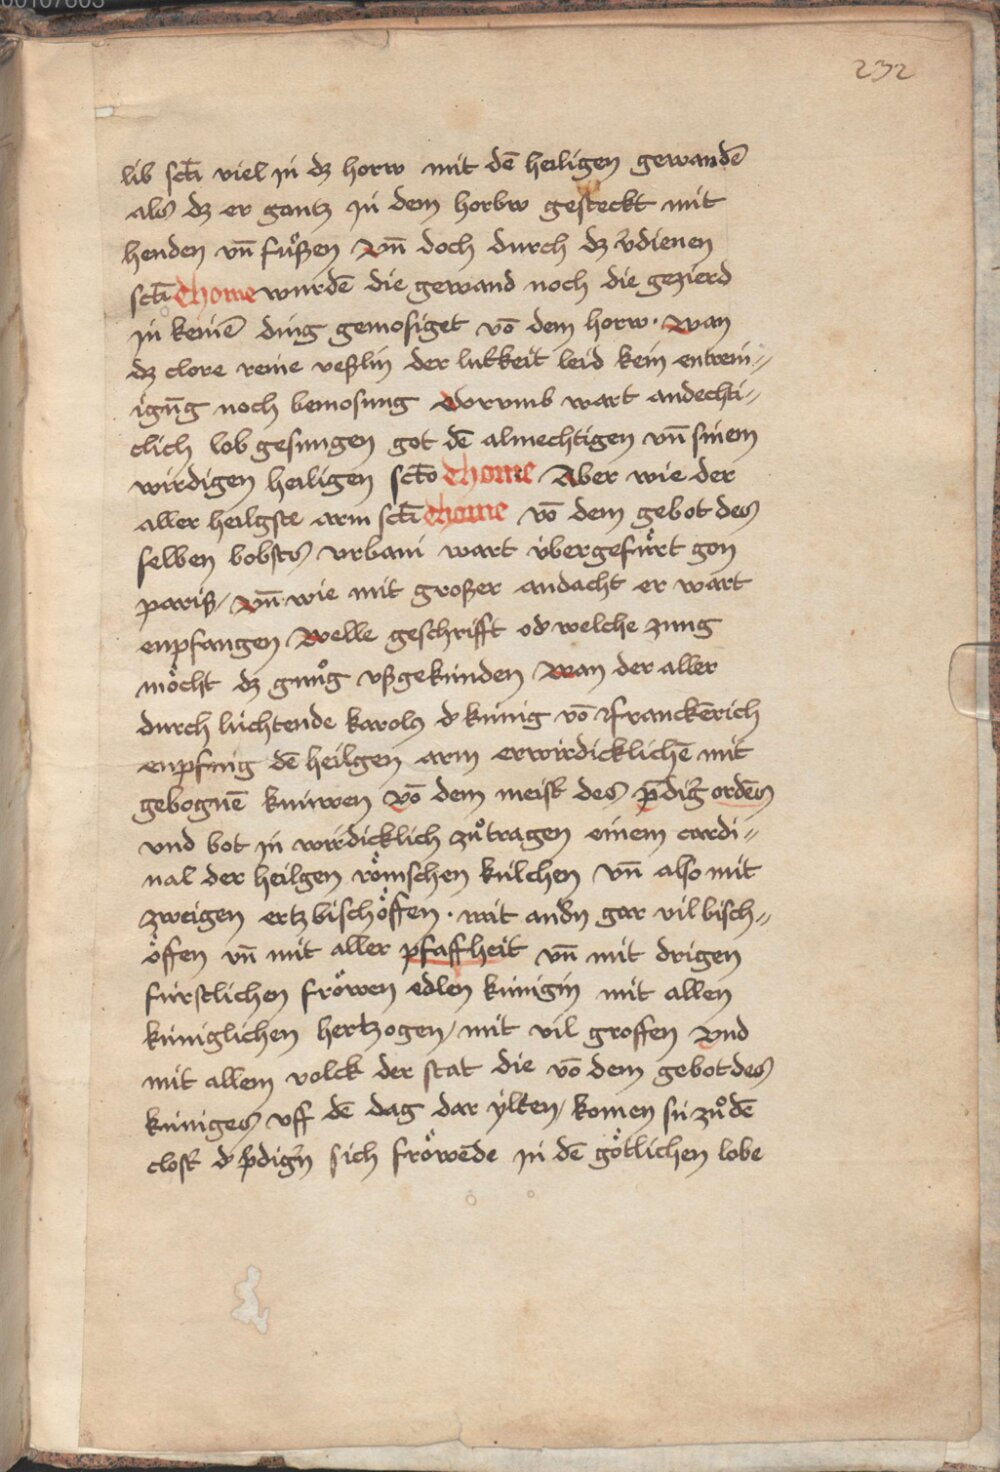 232
lib sctī viel jn dz horw mit dē heiligen gewandē
als dz er gantz jn dem horbw gesteckt mit
henden vn̄ fuͤßen Vn̄ doch durch dz v̓dienen
sctī Thome wurdē die gewand noch die gezierd
jn keinē ding gemosiget vō dem horw · Wan
dz clore reine veßlin der lutkeit leid kein entrein„
igūg noch bemosung Dorvmb wart andechti„
clich lob gesungen got dē almechtigen vn̄ sinem
wirdigen heiligen sctō Thome Aber wie der
aller heilgste arm sctī Thome vō dem gebot des
selben bobsts vrbani wart v̈bergefuͤrt gon
pariß / Vn̄ wie mit großer andacht er wart
enpfangen Welle geschrifft od̓ welche zung
moͤcht dz gnuͦg vßgekunden Wan der aller
durch luchtende karolꝰ d̓ kunig vō Franckērich
enpfing dē heilgen arm erwirdicklichē mit
gebognē knuwen Vō dem meist̓ des p̄dig̓ ordēs
vnd bot jn wirdicklich zuͦ tragen einem cardi„
nal der heilgen roͤmschen kilchen Vn̄ also mit
zweigen ertzbischoͤffen · mit and̓n gar vil bisch„
oͤffen vn̄ mit aller pfaffheit vn̄ mit drigen
furstlichen froͤwen edlen kunigin mit allen
kuniglichen hertzogen / mit vil groffen Vnd
mit allem volck der stat die vō dem gebot des
kuniges vff dē dag dar ylten / komen su zuͦ dē
clost̓ d̓ p̄dig̓n sich froͤwēde jn dē goͤtlichen lobe